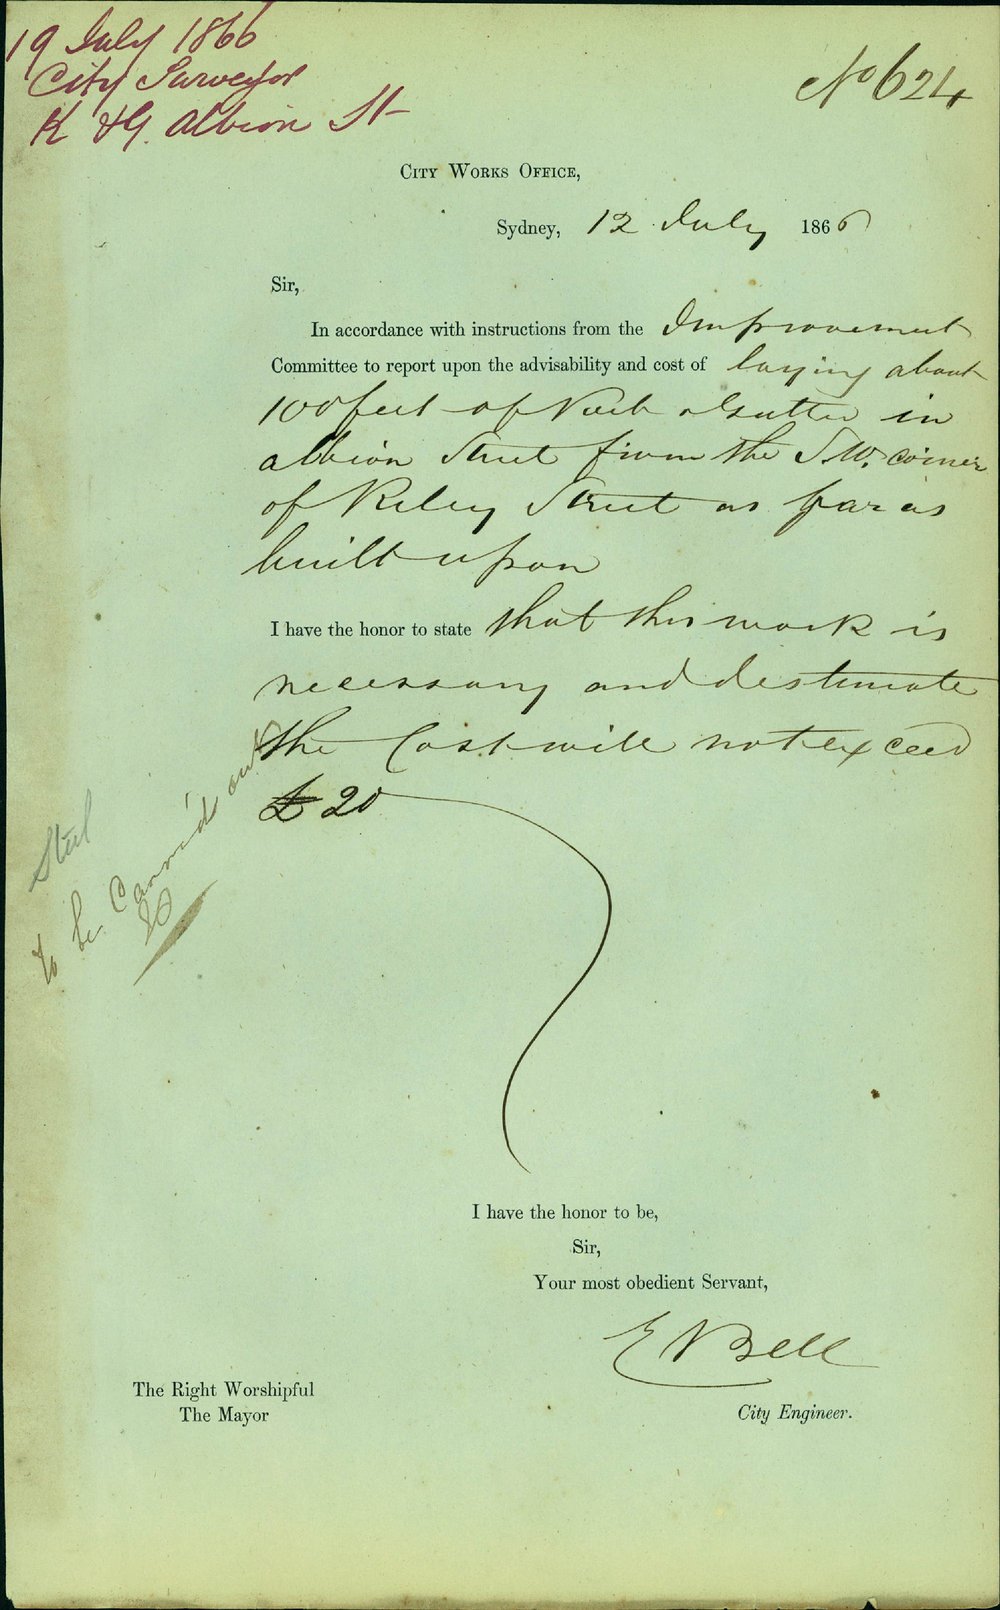 19 July 1866
City Surveyor
K & G. Albion St
No 624
City Works Office,
Sydney, 12 July 1866
Sir,
In accordance with instructions from the Improvement
Committee to report upon the advisability and cost of laying about
100 feet of Kerb & Gutter in
Albion Street from the S.W. corner
of Riley Street as far as
built upon
I have the honor to state that this work is
necessary and I estimate
the Cost will not exceed
£20
to be Carried out
I have the honor to be,
Sir,
Your most obedient Servant,
E Bell
City Engineer.
The Right Worshipful
The Mayor